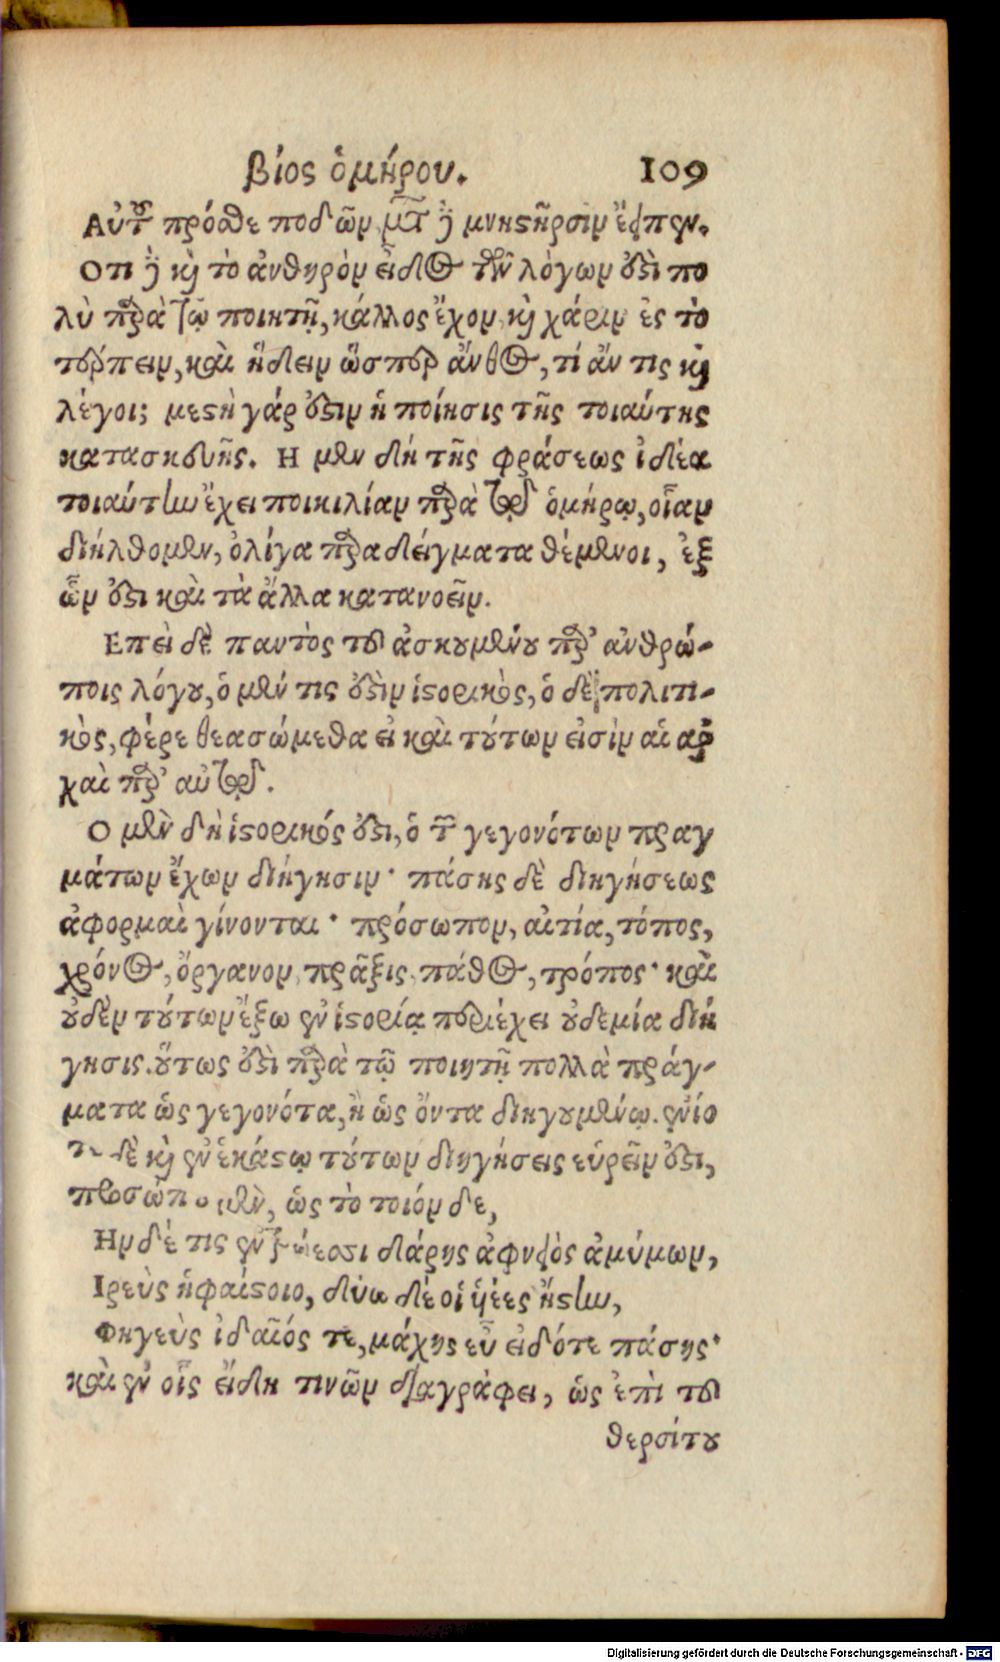 βίος ὁμήρου. 109
Αὐτοῦ πρόσθε ποδῶν μετὰ δὲ μνηστῆρσιν ἔειπεν.
Οτι δὲ καὶ τὸ ἀνθηρὸν εἶδος τῶν λόγων ἐστὶ πο
λὺ παρὰ τῷ ποιητῇ, κάλλος ἔχον καὶ χάριν ἐς τὸ
τέρπειν, καὶ ἥδειν ὥσπερ ἄνθος, τί ἄν τις καὶ
λέγοι; μεστὴ γάρ ἐστιν ἡ ποίησις τῆς τοιαύτης
κατασκευῆς. Η μὲν δὴ τῆς φράσεως ἰδέα
τοιαύτην ἔχει ποικιλίαν παρὰ τῷ ὁμήρῳ, οἵαν
διήλθομεν, ὀλίγα παραδείγματα θέμενοι, ἐξ
ὧν ἔστι καὶ τὰ ἄλλα κατανοεῖν.
Επεὶ δὲ παντὸς τοῦ ἀσκουμένου παρ' ἀνθρώ-
ποις λόγου, ὁ μέν τις ἐστὶν ἱστορικὸς, ὁ δὲ πολιτι-
κὸς, φέρε θεασώμεθα εἰ καὶ τούτων εἰσὶν αἱ ἀρ
χαὶ παρ' αὐτῷ.
Ο μὲν δὴ ἱστορικός ἐστι, ὁ τῶν γεγονότων πραγ
μάτων ἔχων διήγησιν· πάσης δὲ διηγήσεως
ἀφορμαὶ γίνονται· πρόσωπον, αἰτία, τόπος,
χρόνος, ὄργανον, πρᾶξις, πάθος, τρόπος· καὶ
οὐδὲν τούτων ἔξω ἐν ἱστορίᾳ περιέχει οὐδεμία διή
γησις. οὕτως ἐστὶ παρὰ τῷ ποιητῇ πολλὰ πράγ-
ματα ὡς γεγονότα, ἢ ὡς ὄντα διηγουμένῳ. ἐνίο
τε δὲ καὶ ἐν ἑκάστῳ τούτων διηγήσεις εὑρεῖν ἔστι,
προσώπου μὲν, ὡς τὸ τοιόνδε,
Ην δέ τις ἐν τρώεσσι δάρης ἀφνειὸς ἀμύμων,
Ιρεὺς ἡφαίστοιο, δύω δέ οἱ ὑέες ἤστην,
Φηγεὺς ἰδαῖός τε, μάχης εὖ εἰδότε πάσης·
καὶ ἐν οἷς εἴδη τινῶν διαγράφει, ὡς ἐπὶ τοῦ
θερσίτου
Digitalisierung gefördert durch die Deutsche Forschungsgemeinschaft - DFG